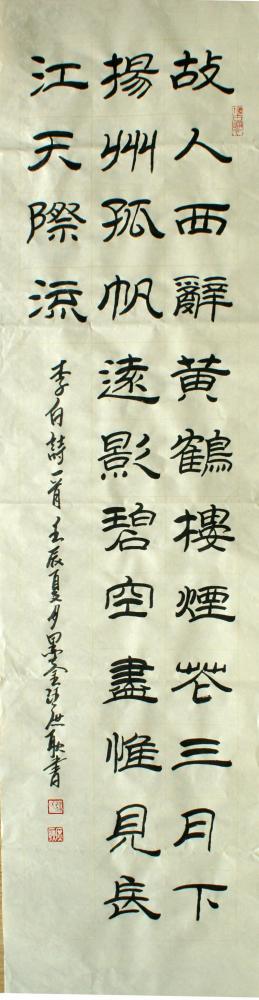 故人西辭黄鶴樓煙花三月下
揚州孤帆遠影碧空盡惟見長
江天際流
李白詩一首壬辰夏月墨金
書